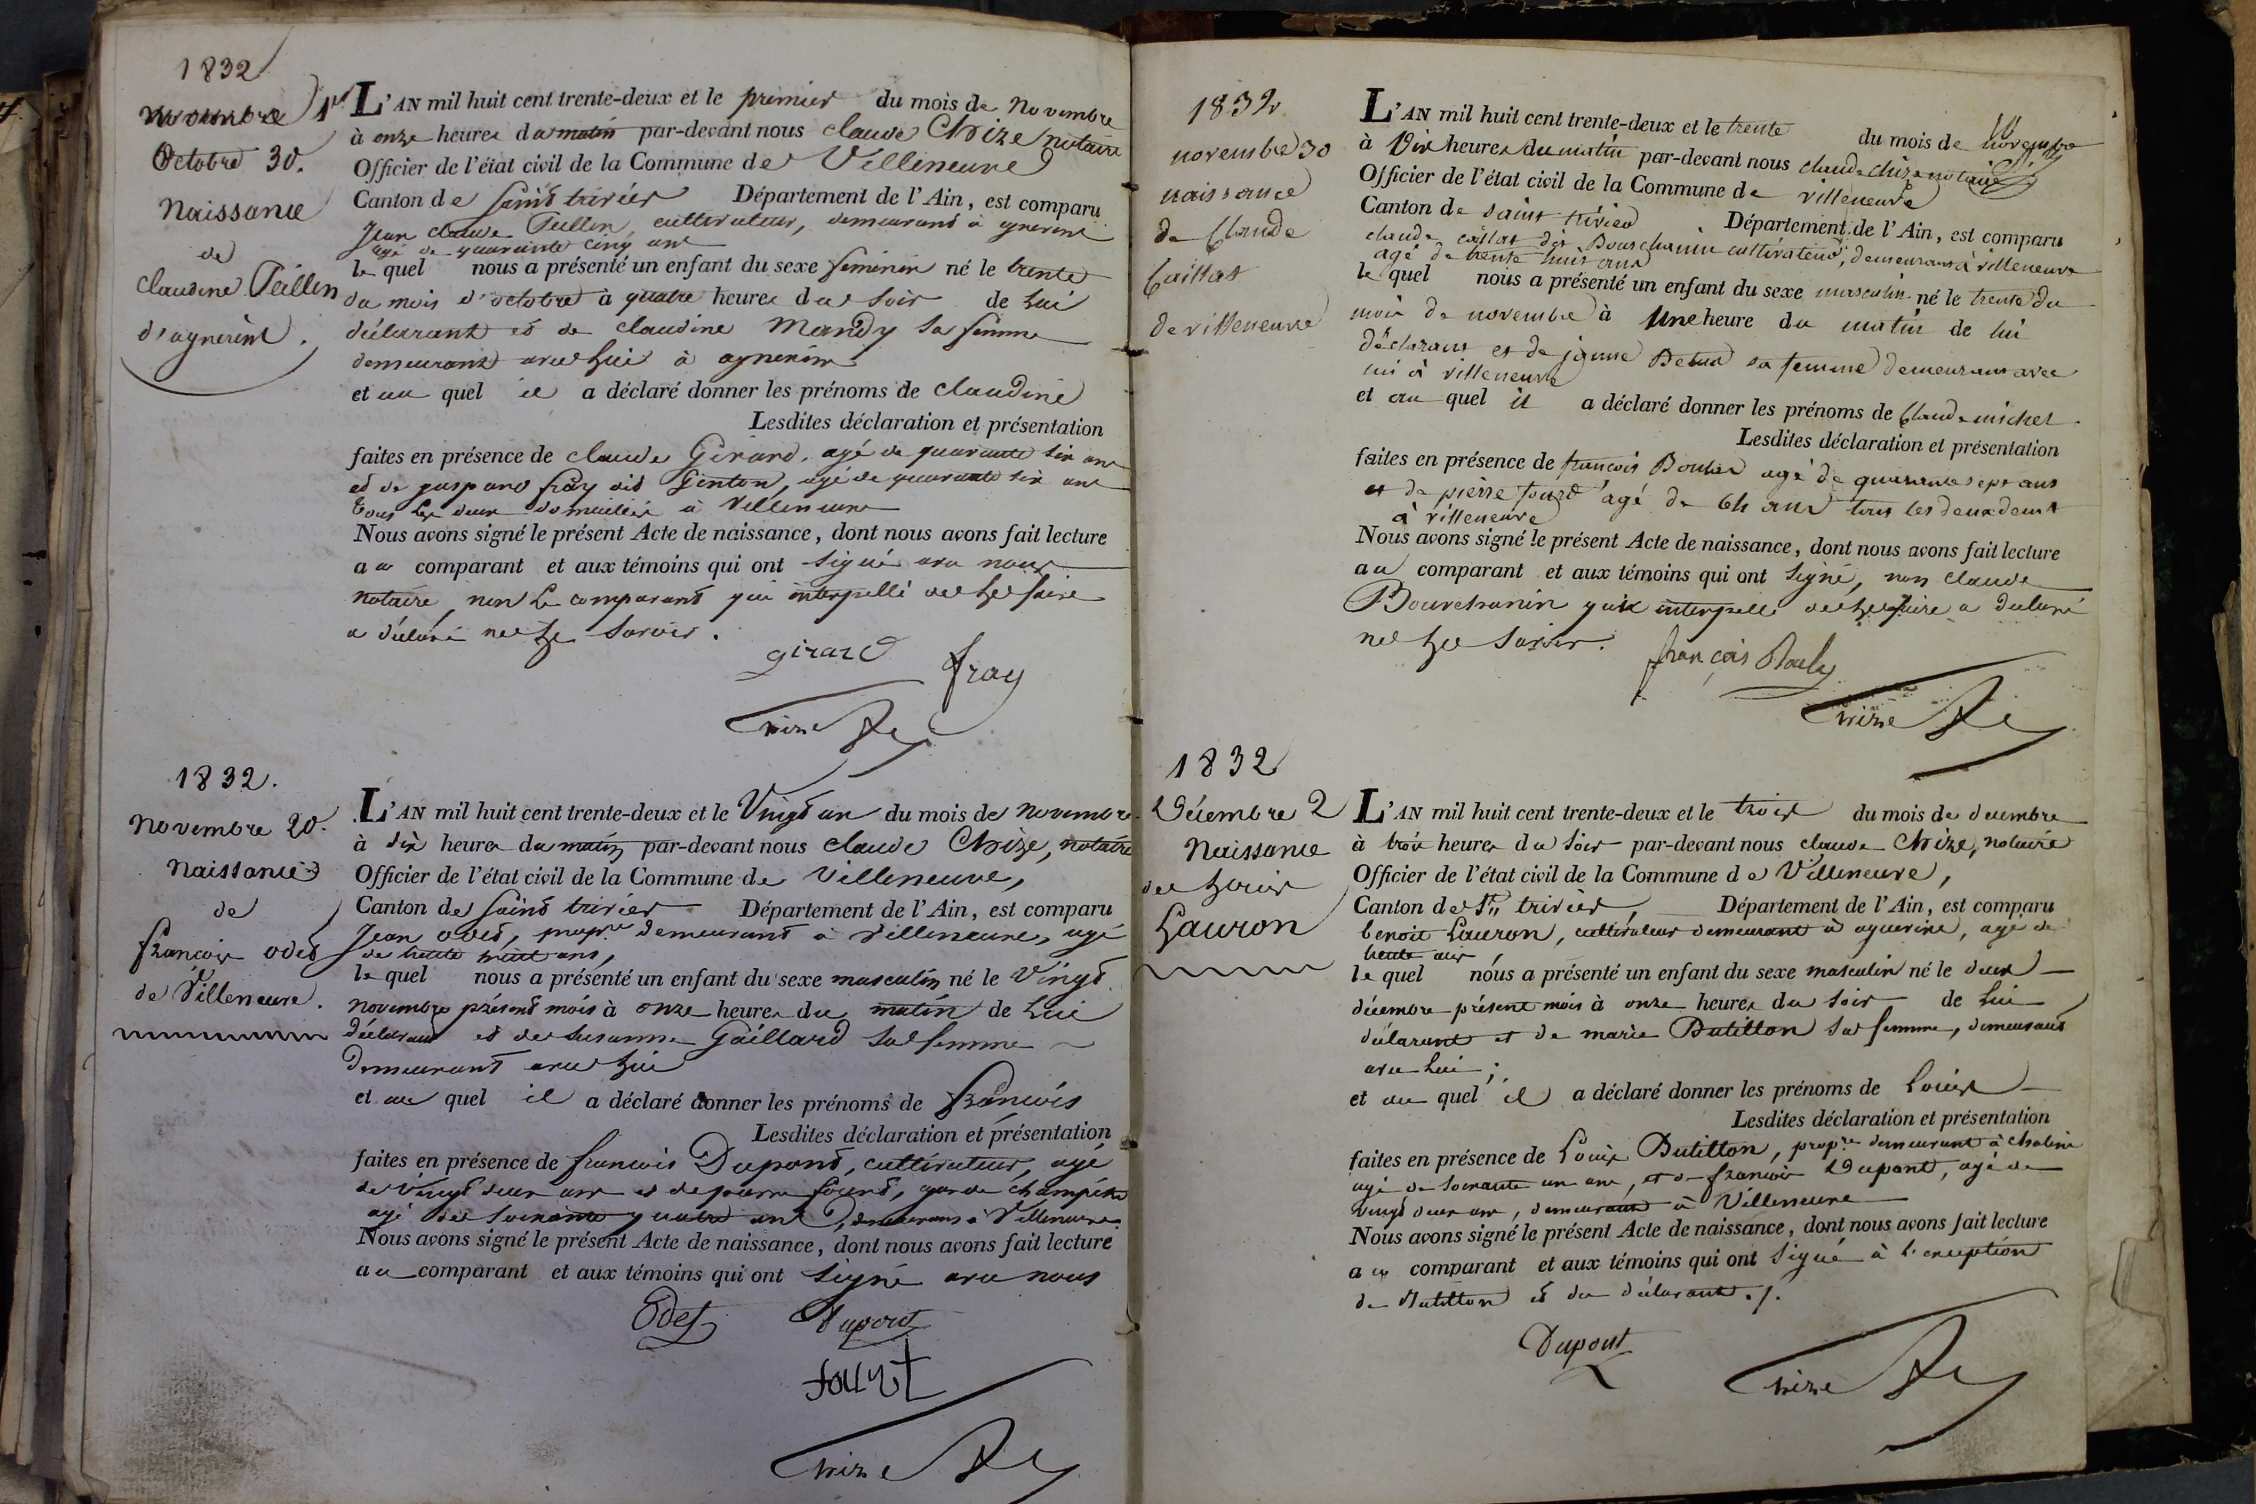 1832
novembre 1er
Octobre 30.
Naissance
de
claudine Teillon
d'agnerins.
L'AN mil huit cent trente-deux et le premier du mois de novembre
à onze heures du matin par-devant nous claude Chize notaire
Officier de l'état civil de la Commune de Villeneuve
Canton de Saint trivier Département de l'Ain, est comparu
Jean claude cultivateur, demeurant à
agé de quarante cinq ans
le quel nous a présenté un enfant du sexe feminin né le trente
du mois d'octobre à quatre heures du soir de lui
déclarant et de claudine Mandy sa femme
demeurant avec lui à agnerins
et au quel il a déclaré donner les prénoms de claudine
Lesdites déclaration et présentation
faites en présence de claude Girard, agé de quarante six ans
et de gaspard fray dit Genton, agé de quarante six ans
tous les deux domiciliés à Villeneuve
Nous avons signé le présent Acte de naissance, dont nous avons fait lecture
au comparant et aux témoins qui ont signé avec nous
notaire, non le comparant qui interpellé de le faire
a déclaré ne le savoir.
girard fray
Chize
1832.
novembre 20.
Naissance
de
françois odet
de Villeneuve.
L'AN mil huit cent trente-deux et le Vingt un du mois de novembre
à dix heures du matin par-devant nous claude Chize, notaire
Officier de l'état civil de la Commune de Villeneuve,
Canton de Saint trivier Département de l'Ain, est comparu
Jean odet, propre demeurant à Villeneuve, agé
de trente huit ans,
le quel nous a présenté un enfant du sexe masculin né le Vingt
novembre présent mois à onze heures du matin de lui
déclarant et de susanne Gaillard sa femme
demeurant avec lui
et au quel il a déclaré donner les prénoms de françois
Lesdites déclaration et présentation
faites en présence de francois Dupont, cultivateur, agé
de vingt deux ans et de pierre fourt, garde champêtre
agé de soixante quatre ans, demeurans à Villeneuve.
Nous avons signé le présent Acte de naissance, dont nous avons fait lecture
au comparant et aux témoins qui ont signé avec nous
Odet Dupont
Chize
1832
novembre 30
naissance
de Claude
Caillat
de villeneuve
L'AN mil huit cent trente-deux et le trente du mois de novembre
à dix heures du matin par-devant nous claude chize notaire
Officier de l'état civil de la Commune de villeneuve
Canton de saint trivier Département de l'Ain, est comparu
claude caillat dit Bourchanin cultivateur, demeurant à villeneuve
agé de trente huit ans
le quel nous a présenté un enfant du sexe masculin né le trente du
mois de novembre à une heure du matin de lui
déclarant et de jeanne sa femme demeurant avec
lui à villeneuve
et au quel il a déclaré donner les prénoms de Claude michel.
Lesdites déclaration et présentation
faites en présence de francois agé de quarante sept ans
et de pierre agé de 64 ans tous les deux demt
à villeneuve
Nous avons signé le présent Acte de naissance, dont nous avons fait lecture
au comparant et aux témoins qui ont signé, non claude
Bourchanin qui interpellé de le faire a déclaré
ne le savoir.
françois
Chize
1832
Décembre 2
Naissance
de Louis
Lauron
L'AN mil huit cent trente-deux et le trois du mois de decembre
à trois heures du soir par-devant nous claude Chize, notaire
Officier de l'état civil de la Commune de Villeneuve,
Canton de St trivier Département de l'Ain, est comparu
benoit Lauron, cultivateur demeurant à agnerins, agé de
trente
le quel nous a présenté un enfant du sexe masculin né le deux
décembre présent mois à onze heures du soir de lui
déclarant et de marie Butillon sa femme, demeurant
avec lui;
et au quel il a déclaré donner les prénoms de Louis
Lesdites déclaration et présentation
faites en présence de Louis Butillon, propre demeurant à
agé de soixante un ans, et de françois Dupont, agé de
vingt deux ans, demeurant à Villeneuve
Nous avons signé le présent Acte de naissance, dont nous avons fait lecture
au comparant et aux témoins qui ont signé à l'exception
de Butillon et du déclarant./.
Dupont
Chize